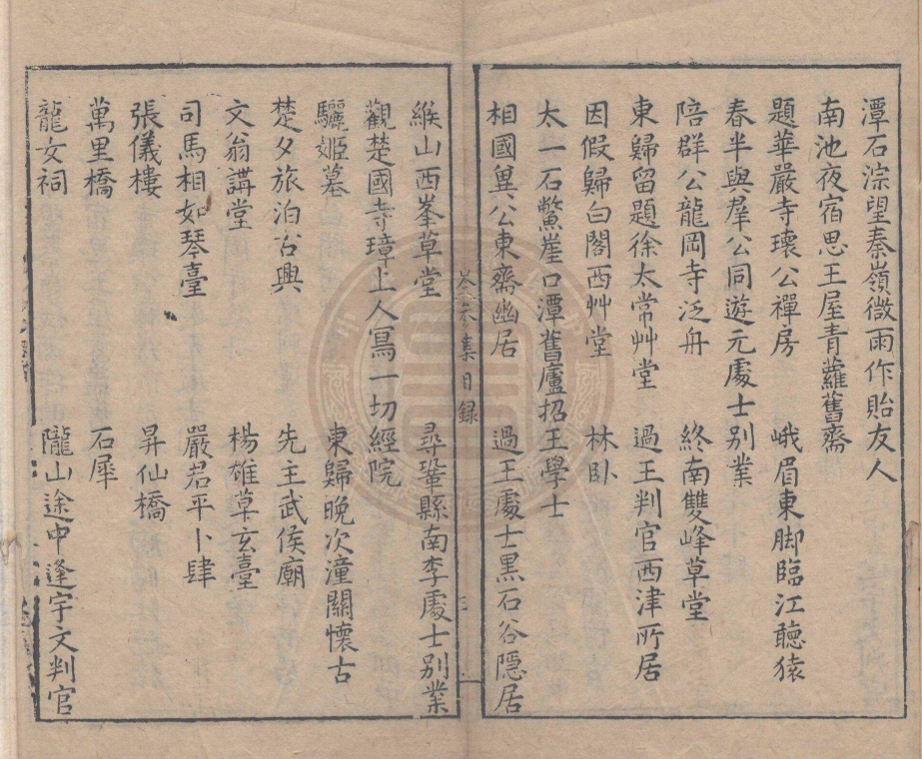 潭石淙望秦嶺微雨作貽友人
南池夜宿思王屋青蘿舊齋
題華嚴寺瓌公禪房　峨眉東脚臨江聽猿
春半與羣公同遊元處士別業
陪群公龍岡寺泛舟　終南雙峰草堂
東歸留題徐太常艸堂　過王判官西津所居
因假歸白閣西艸堂　林卧
太一石鱉崖口潭舊廬招王學士
相國異公東齋幽居　過王處士黑石谷隱居
岑參集目錄
緱山西峯草堂　尋鞏縣南李處士別業
觀楚國寺璋上人寫一切經院
驪姬墓　東歸晚次潼關懷古
楚夕旅泊古興　先主武侯廟
文翁講堂　楊雄草玄臺
司馬相如琴臺　嚴君平卜肆
張儀樓　昇仙橋
萬里橋　石犀
龍女祠　隴山途中逢宇文判官